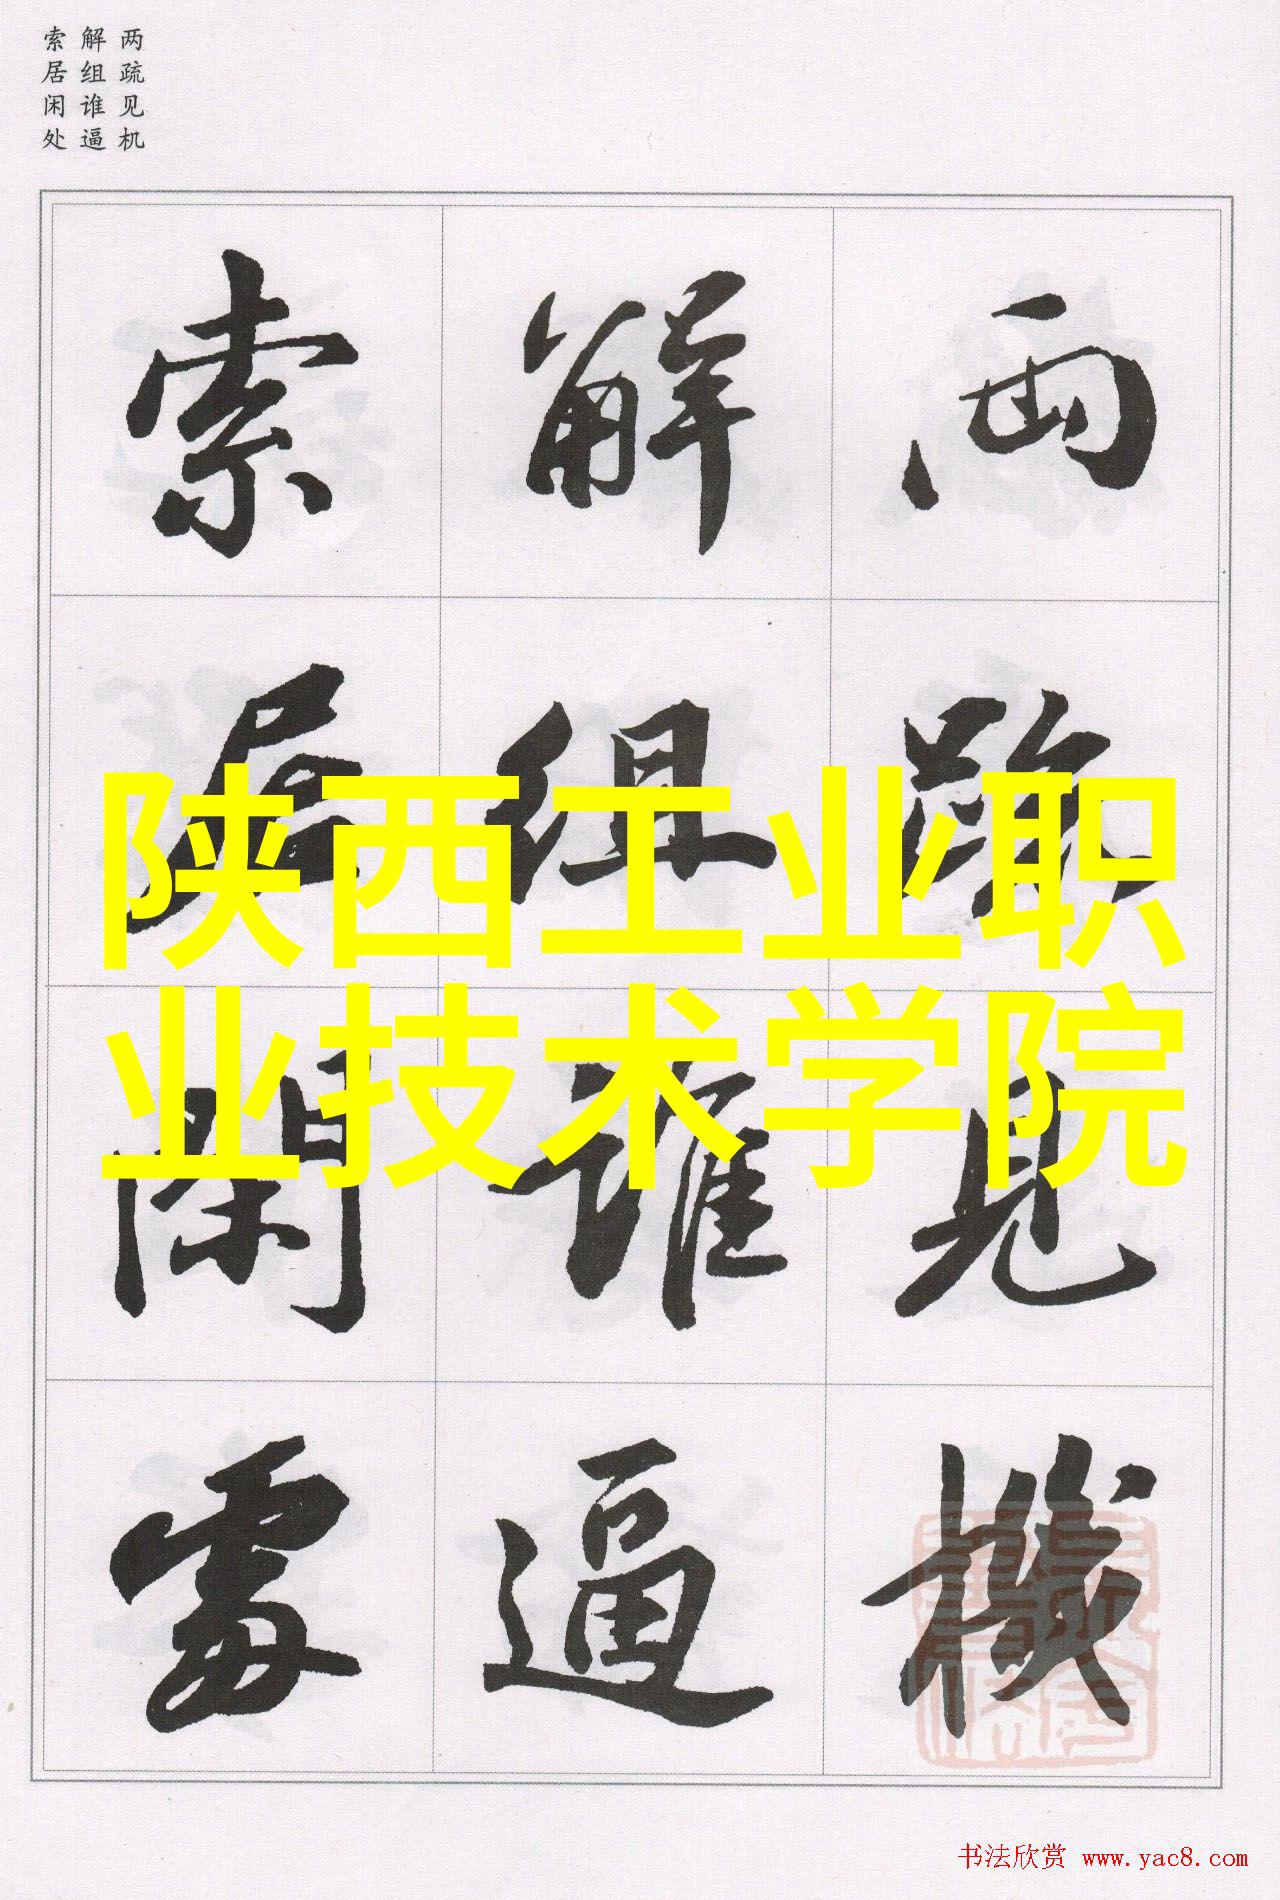 两疏见机
解组谁逼
索居闲处
两疏見機
解组谁逼
索居閑處
陕西工业职
业技术学院
书法欣赏 www.yac8.com